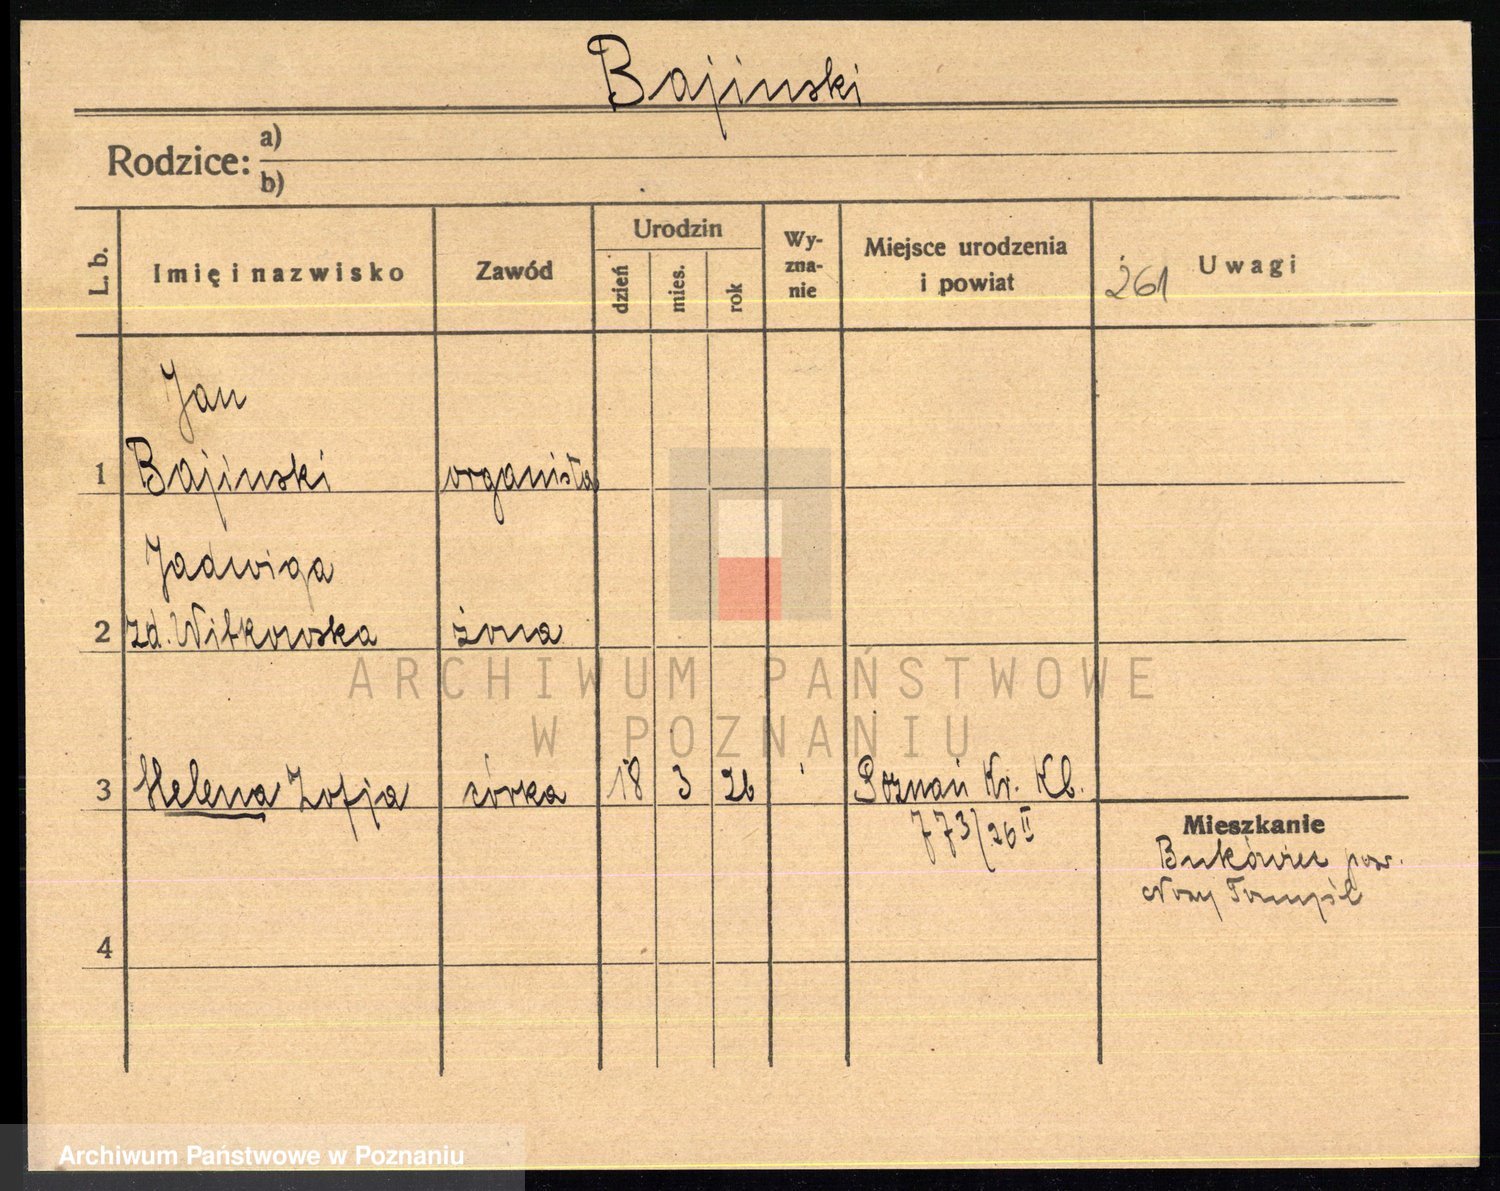 Bajinski
Rodzice: a)
b)
L. b.
Imię i nazwisko
Zawód
Urodzin
dzień
mies.
rok
Wy-
zna-
nie
Miejsce urodzenia
i powiat
261 Uwagi
Jan
1 Bajinski organista
Jadwiga
2 zd. Witkowska żona
3 Helena Zofja córka 18 3 26 Poznań Kr. Kb.
773/26 II
Mieszkanie
Bukówiec pow.
Nowy Tomyśl
4
ARCHIWUM PAŃSTWOWE
W POZNANIU
Archiwum Państwowe w Poznaniu